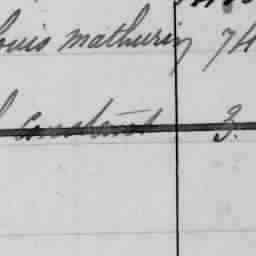 ouis mathurin 74
constant 3.